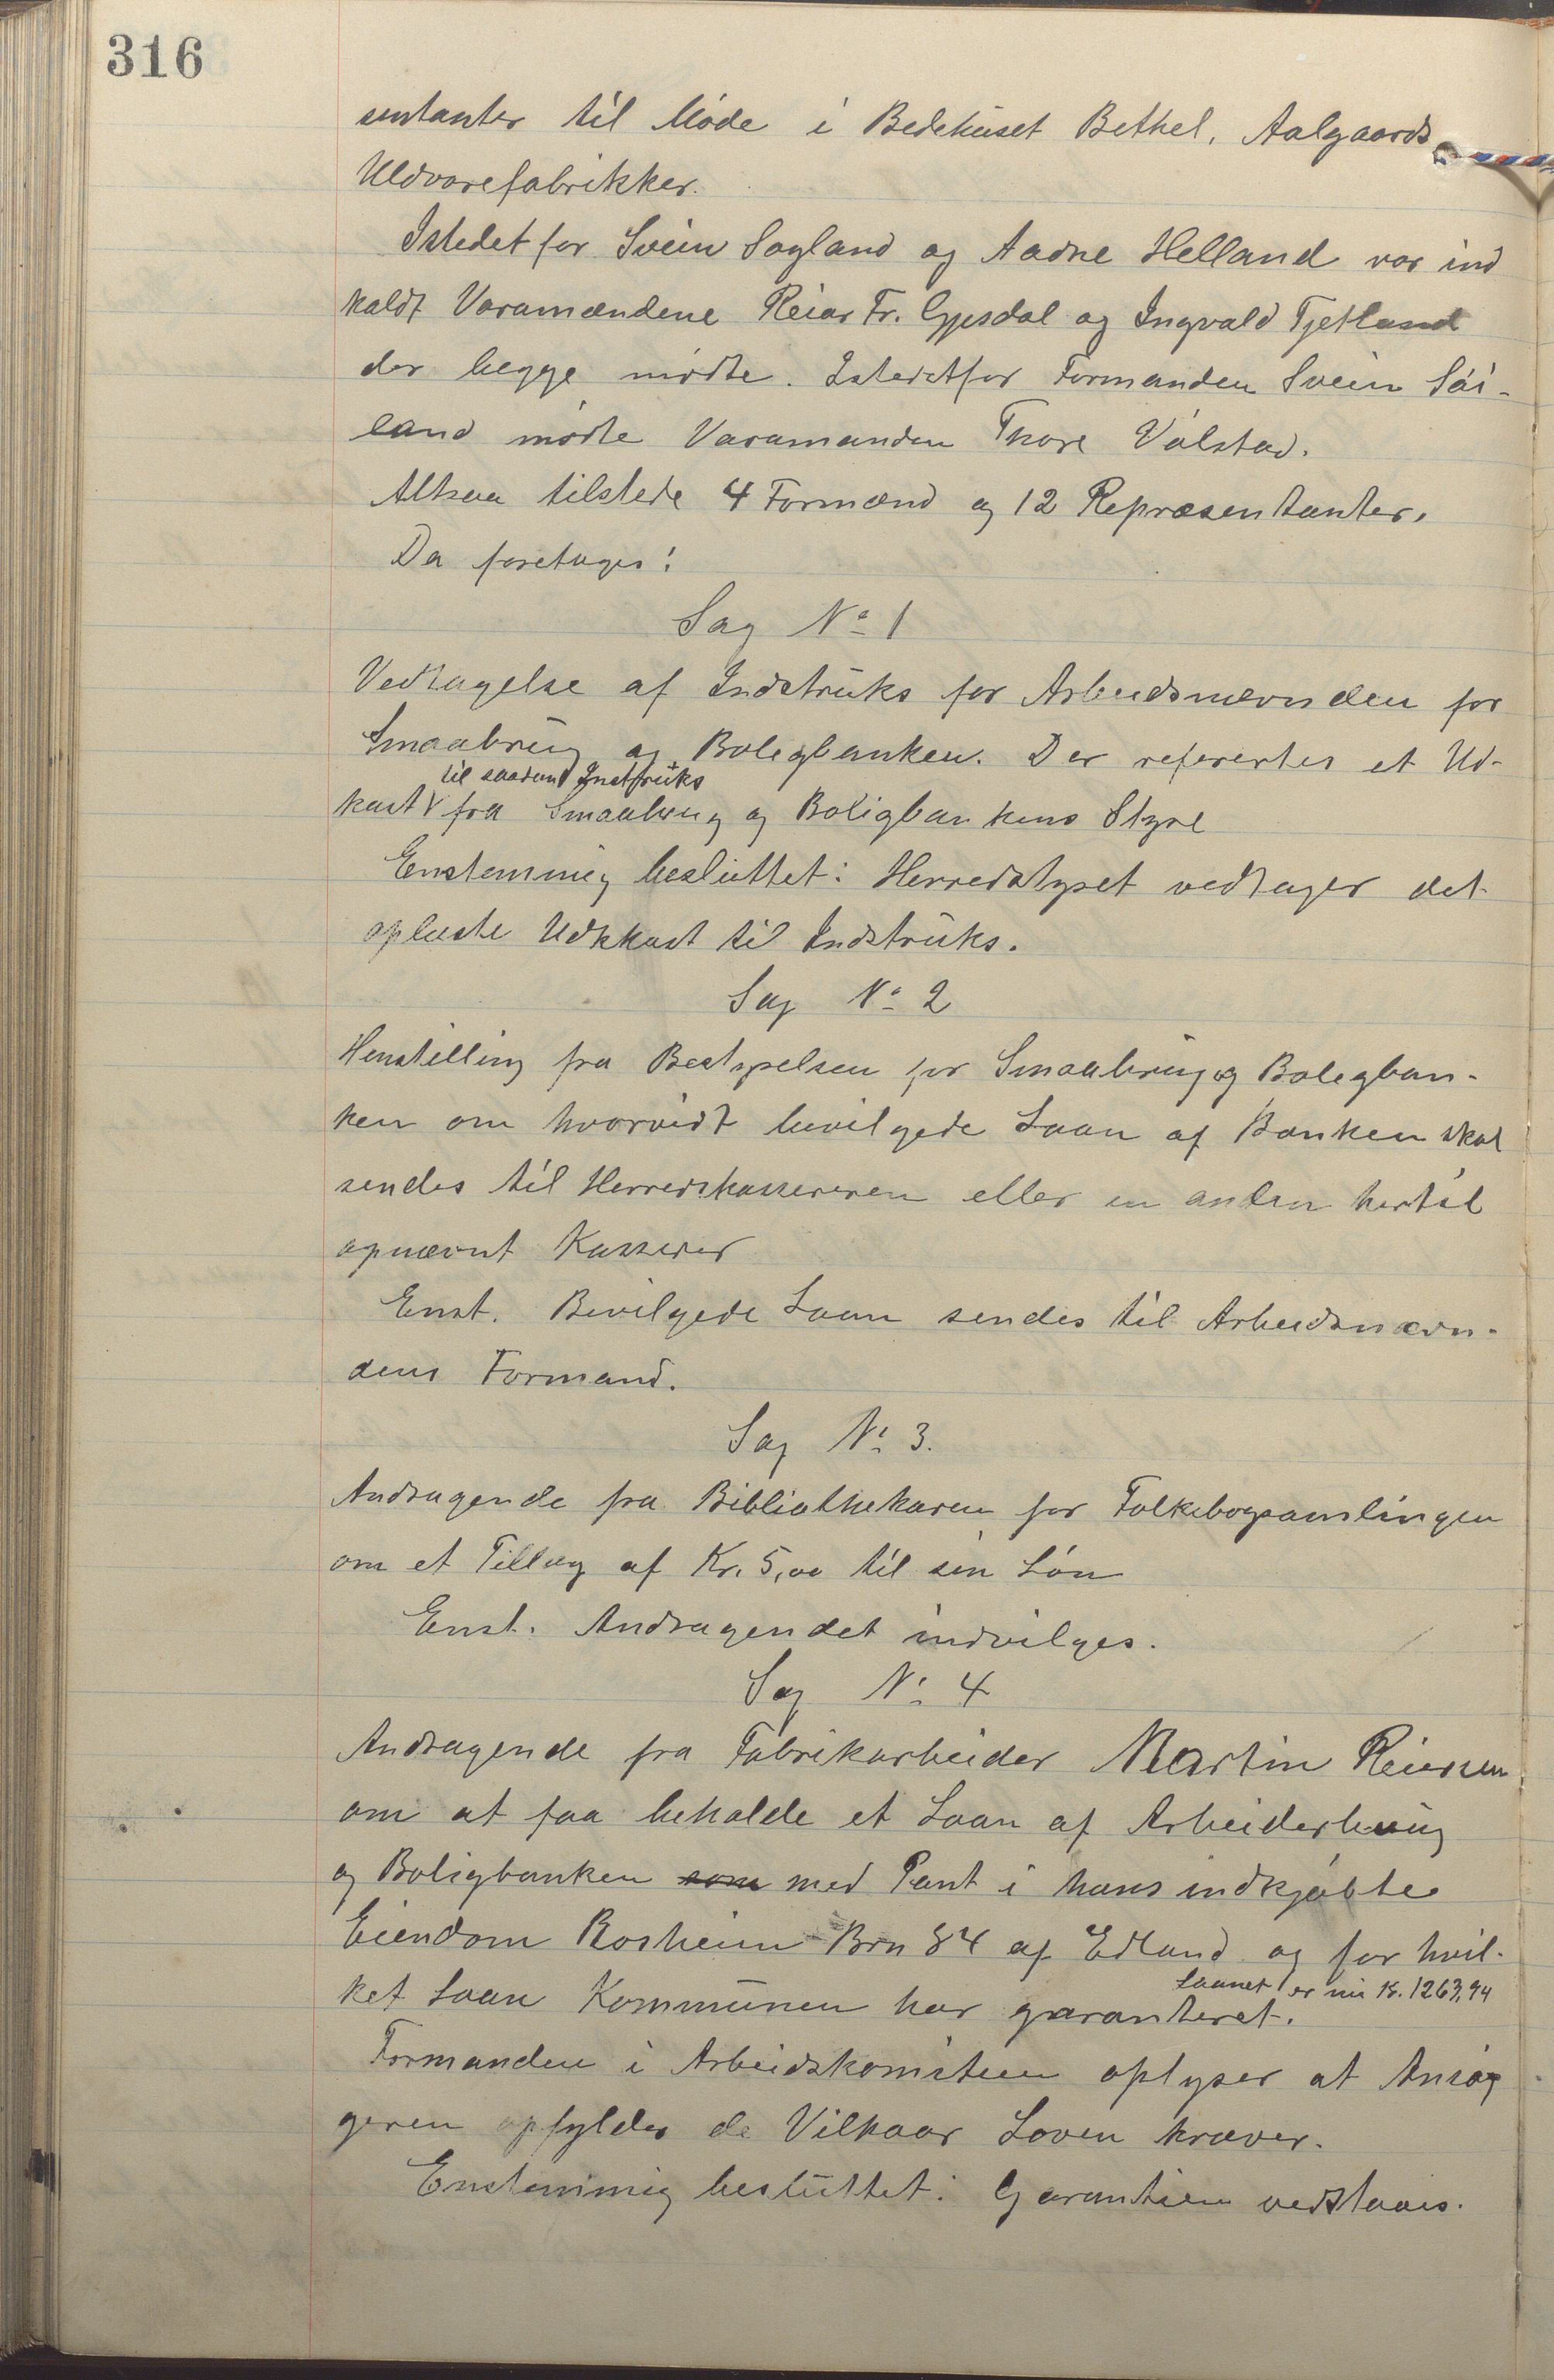 316
sentanter til Møde i Bedehuset Bethel, Aalgaards
Uldvarefabrikker.
Istedetfor Svein Sagland og Aadne Helland var ind
kaldt Varamændene Reiar Fr. Gjesdal og Ingvald Tjetland
der begge mødte. Istedetfor Formanden Svein Søi-
land mødte Varamanden Thore Válstad.
Altsaa tilstede 4 Formænd og 12 Repræsentanter.
Da foretages:
Sag No 1
Vedtagelse af Indstruks for Arbeidsnævnden for
Smaabrug og Boligbanken. Der refereres et Ud-
til saadant Instruks
kast fra Smaabrug og Boligbankens Styre
Enstemmig besluttet: Herredstyret vedtager det
oplæste Udkkast til Indstruks.
Sag No 2
Henstilling fra Bestyrelsen for Smaabrug og Boligban-
ken om hvorvidt bevilgede Laan af Banken skal
sendes til Herredskassereren eller en anden hertil
opnævnt Kasserer
Enst. Bevilgede Laan sendes til Arbeidsnævn-
dens Formand.
Sag No 3.
Andragende fra Bibliothekaren for Folkebogsamlingen
om et Tillæg af Kr. 5,00 til sin Løn
Enst. Andragendet indvilges.
Sag No 4
Andragende fra Fabrikarbeider Martin Reiersen
om at faa beholde et Laan af Arbeiderbrug
og Boligbanken som med Pant i hans indkjøbte
Eiendom Rosheim Brn 84 af Edland og for hvil-
Laanet er nu K. 1263,94
ket Laan Kommunen har garanteret.
Formanden i Arbeidskomiteen oplyser at Ansøg
geren opfylder de Vilkaar Loven kræver.
Enstemmig besluttet: Garantien vedstaaes.